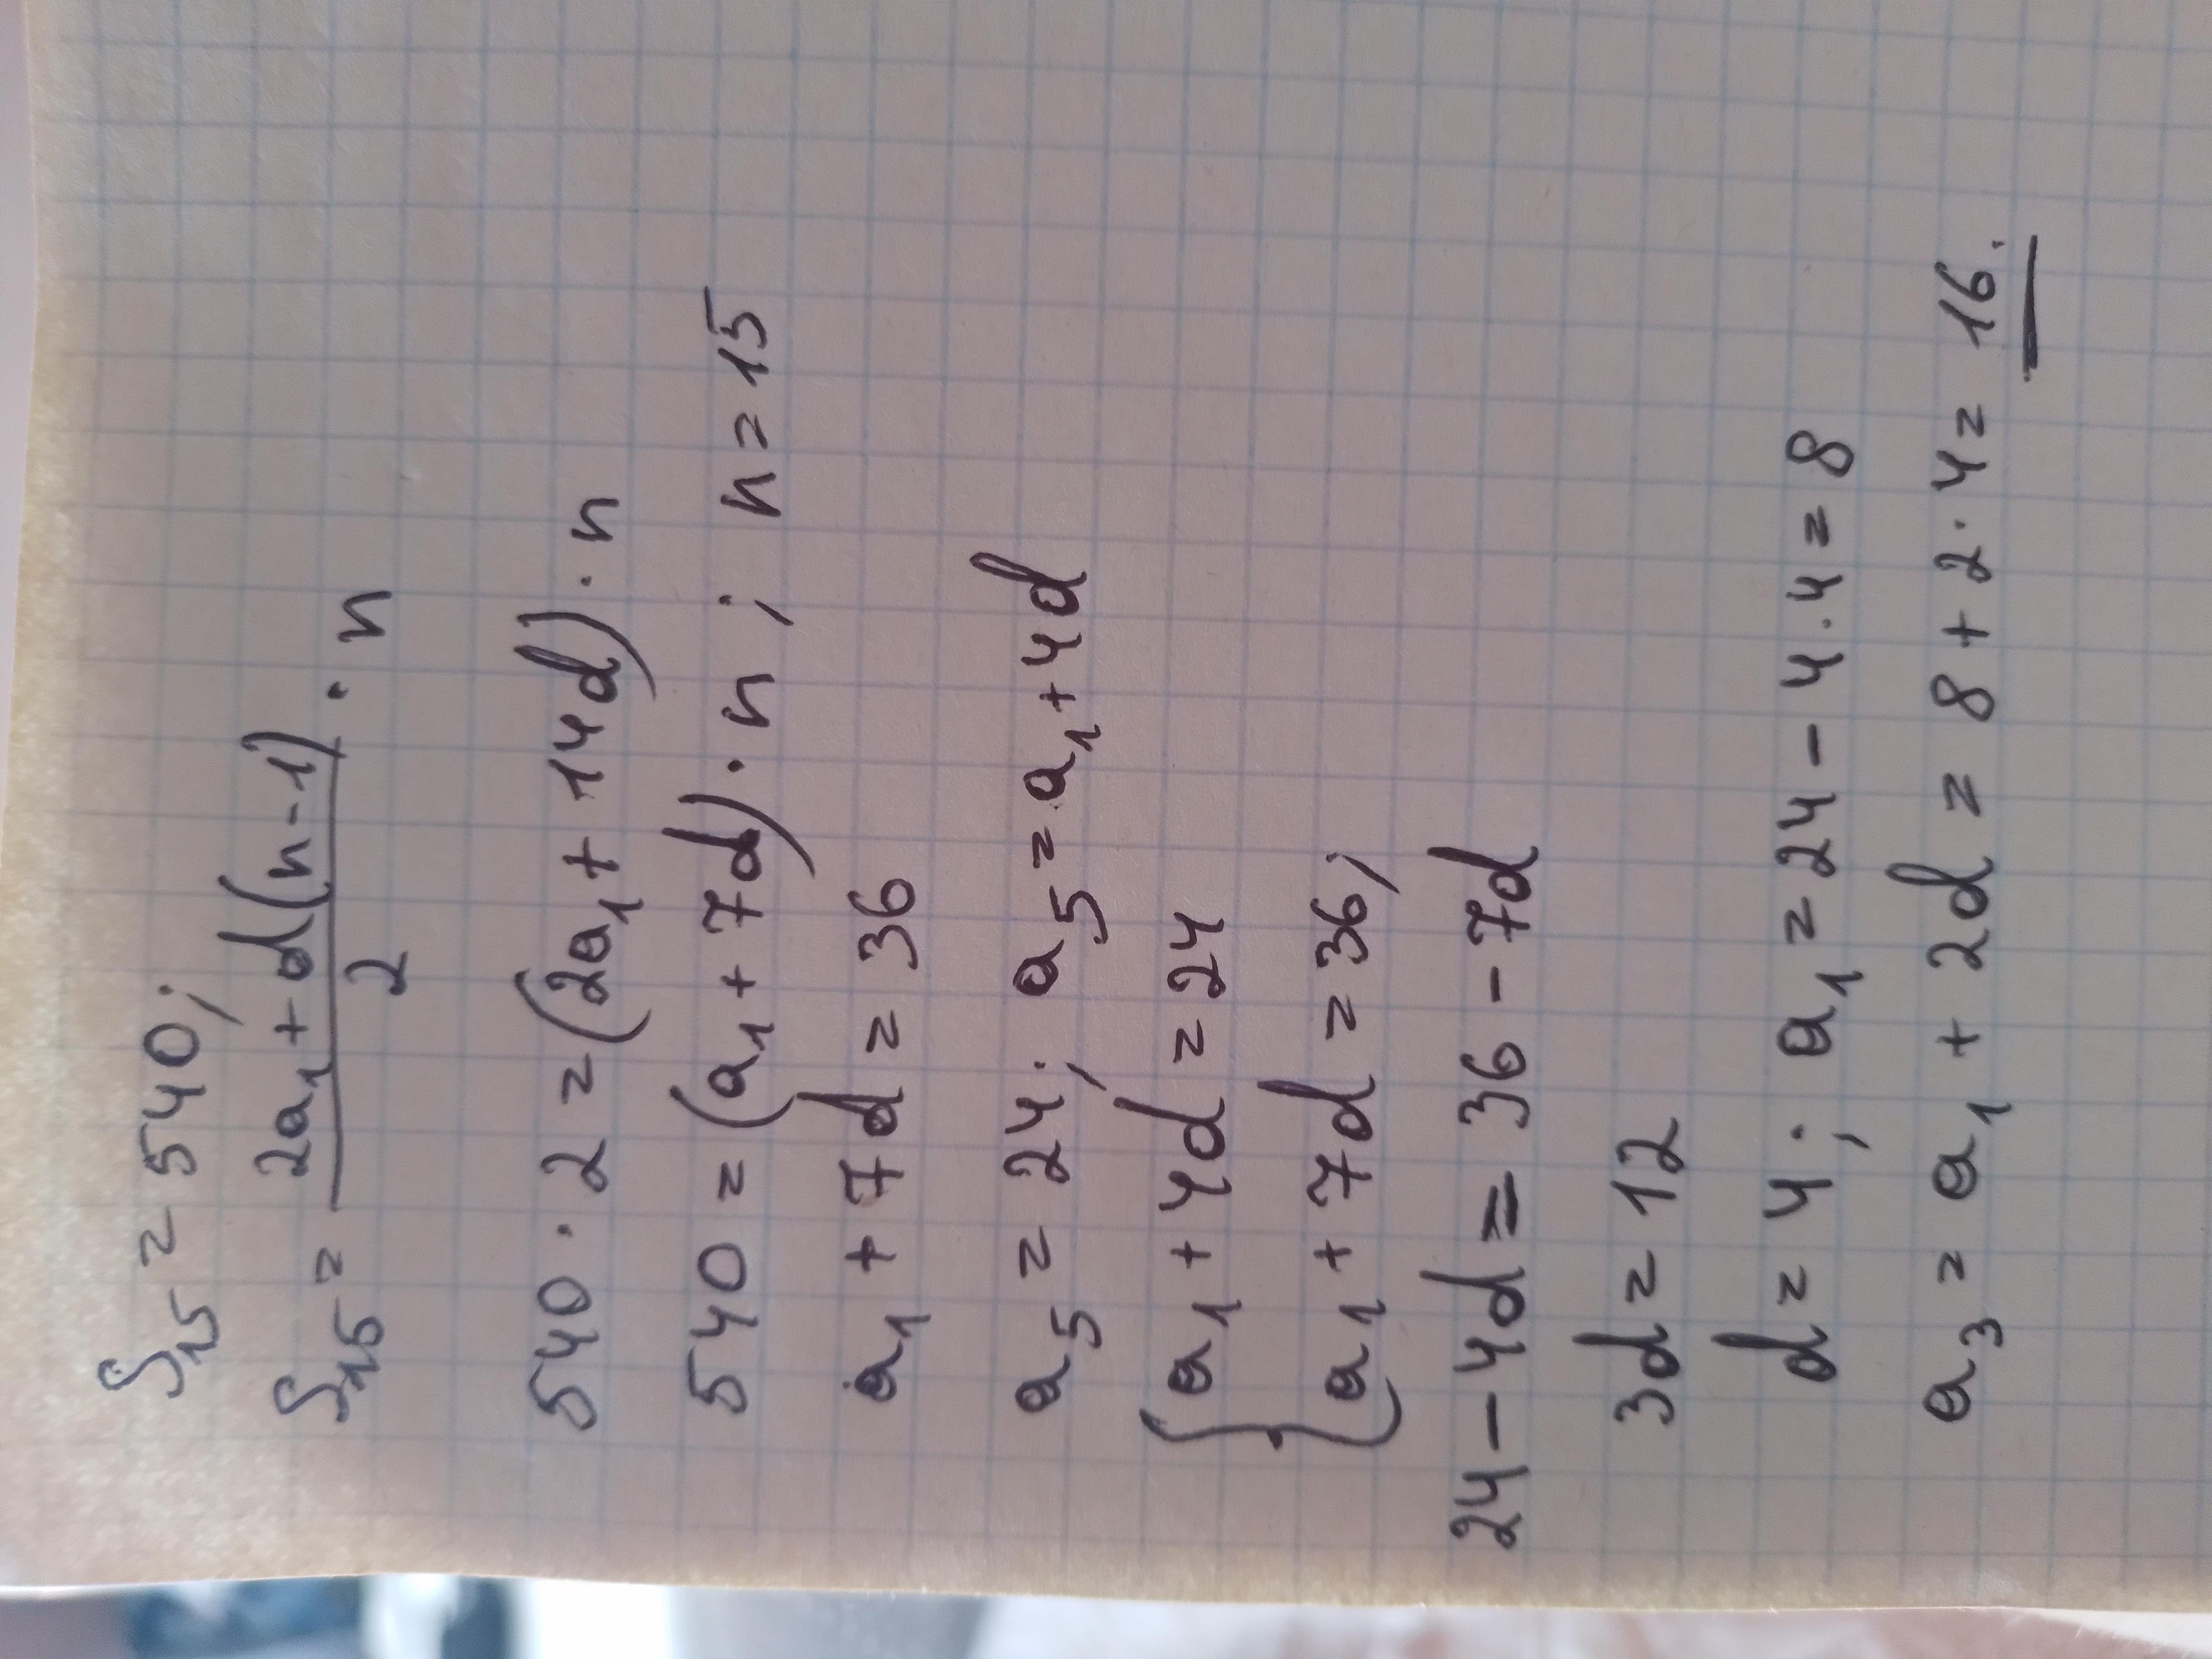 S₁₅ = 540;
S₁₅ = (2a₁ + d(n-1))/2 · n
540 · 2 = (2a₁ + 14d) · n
540 = (a₁ + 7d) · n ; n = 15
a₁ + 7d = 36
a₅ = 24; a₅ = a₁ + 4d
{ a₁ + 4d = 24
{ a₁ + 7d = 36;
24 - 4d = 36 - 7d
3d = 12
d = 4; a₁ = 24 - 4 · 4 = 8
a₃ = a₁ + 2d = 8 + 2 · 4 = 16.